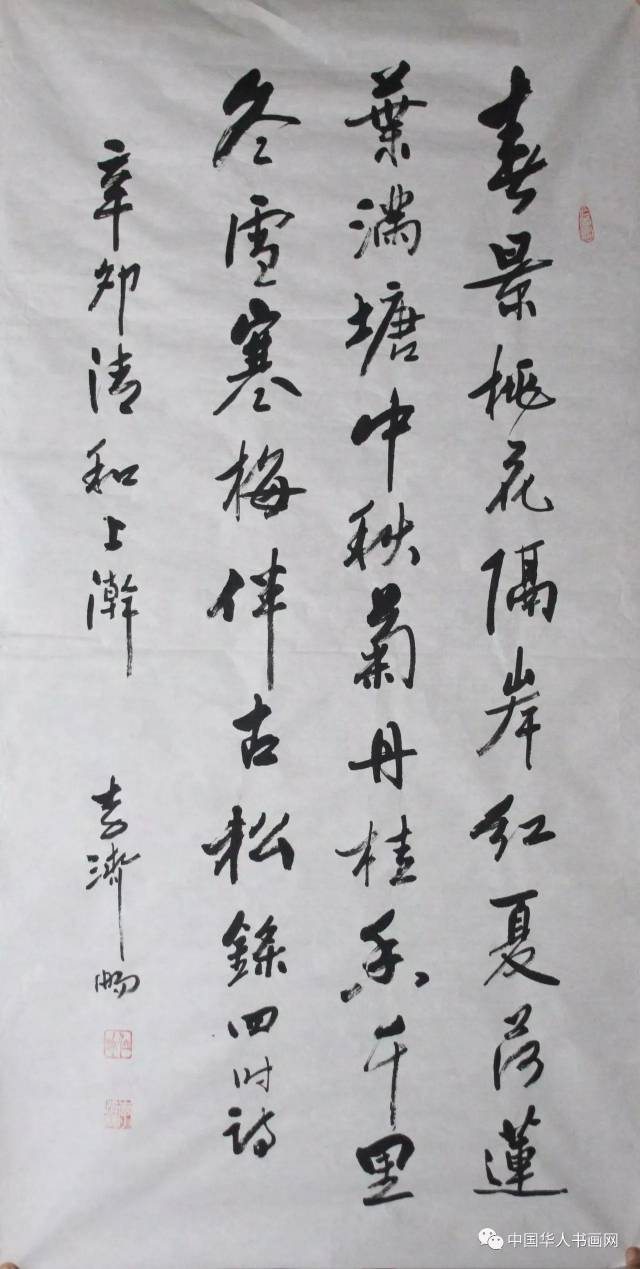 春景桃花隔岸红夏荷莲
葉满塘中秋菊丹桂香千里
冬雪寒梅伴古松録四时诗
辛卯清和上澣
李济畅
中国华人书画网